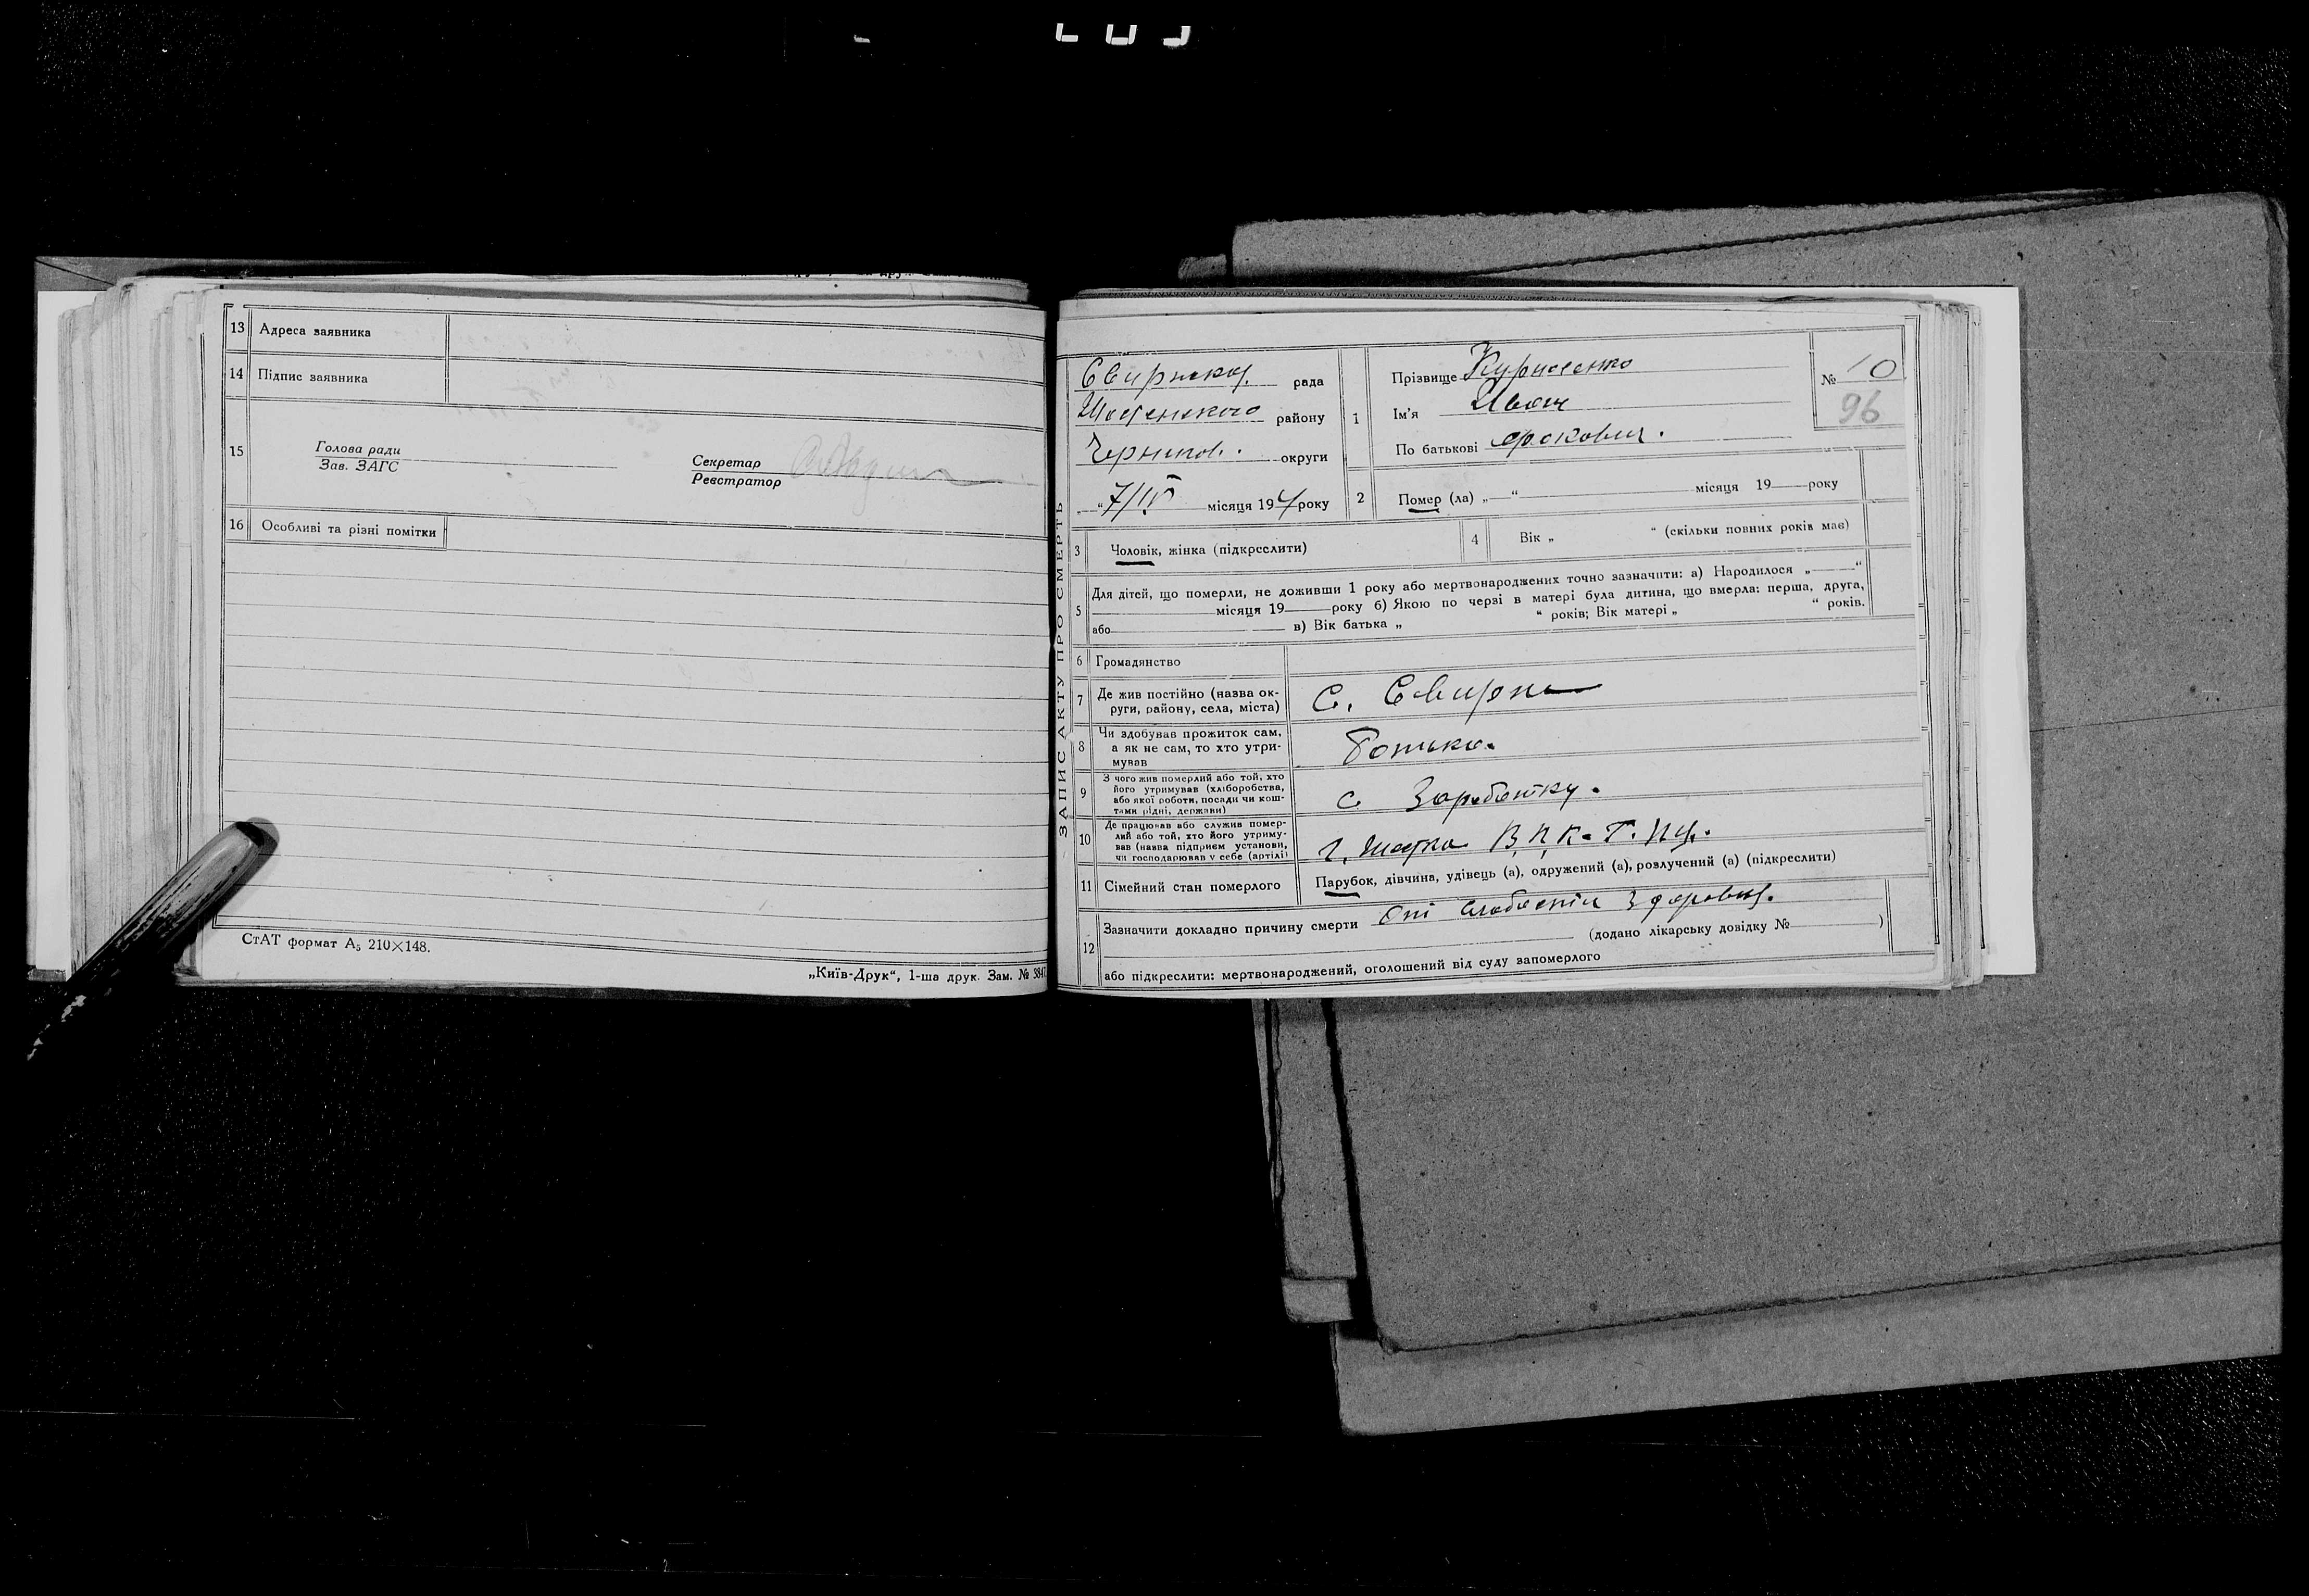 13 Адреса заявника
14 Підпис заявника
15 Голова ради
Зав. ЗАГС
Секретар
Реєстратор
16 Особливі та різні помітки
СтАТ формат А₅ 210×148.
„Київ-Друк“, 1-ша друк. Зам. № 3847.
ЗАПИС АКТУ ПРО СМЕРТЬ
рада
району
Чернигов. округи
„ “ 7/IV місяця 19 року
1 Прізвище
Ім'я Иван
По батькові
№ 10
96
2 Помер (ла) „ “ місяця 19 року
3 Чоловік, жінка (підкреслити)
4 Вік „ “ (скільки повних років має)
5 Для дітей, що померли, не доживши 1 року або мертвонароджених точно зазначити: а) Народилося „ “
місяця 19 року б) Якою по черзі в матері була дитина, що вмерла: перша, друга,
або в) Вік батька „ “ років; Вік матері „ “ років.
6 Громадянство
7 Де жив постійно (назва ок-
руги, району, села, міста)
С.
8 Чи здобував прожиток сам,
а як не сам, то хто утри-
мував
Батько.
9 З чого жив померлий або той, хто
його утримував (хліборобства,
або якої роботи, посади чи кош-
тами рідні, держави)
с Заработку.
10 Де працював або служив помер-
лий або той, хто його утриму-
вав (назва підприєм установи,
чи господарював у себе (артілі)
11 Сімейний стан померлого
Парубок, дівчина, удівець (а), одружений (а), розлучений (а) (підкреслити)
12 Зазначити докладно причину смерти
(додано лікарську довідку № )
або підкреслити: мертвонароджений, оголошений від суду запомерлого